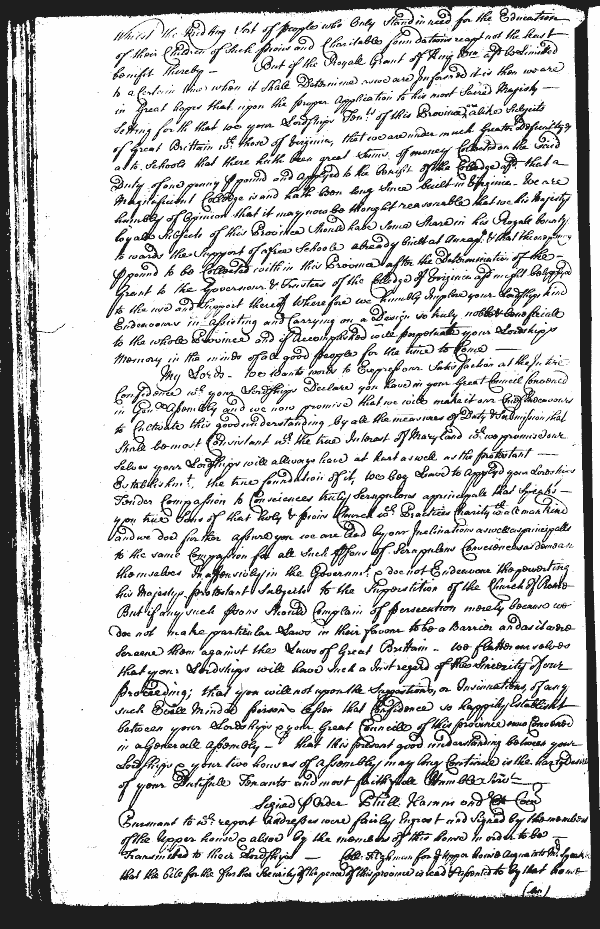 whilst the midling Sort of people who Only Stand in need for the Education
of their Children of such pious and Charitable foundations reap not the least
benifit thereby — But of the Royale Grant of King Wm afsd be Limited
to a Certain time when it shall Determine as we are Informed it is then we are
in Great hopes that upon the proper Application to his most Sacred Majesty —
Setting forth that we your Lordships Tents of this Province are alike Subjects
of Great Brittain wth those of Virginia, that we are under much Greater Difficultys
as to Schools that there hath been great Sums of money Collected on the Said
Duty of one penny p pound and applyed to the benefit of the Colledge afsd that a
Magnificent Colledge is and hath been long Since built in Virginia. We are
humbly of Opinion that it may now be thought reasonable that we his Majestys
loyale Subjects of this Province Should have Some Share in his Royale bounty
towards the Support of a free Schoole already built at & that the
p pound to be Collected within this Province after the Determination of the —
Grant to the Governour & Trustees of the Colledge of Virginia afsd might be
to the use and Support thereof Wherefore we humbly Implore your Lordships kind
Endeavours in assisting and Carrying on a Design so truly noble & beneficiale
to the whole Province and if accomplished will perpetuate your Lordships
Memory in the minds of all good people for the time to Come —
My Lords — We wants words to Express our Satisfaction at the Intire
Confidence wch your Lordships Declare you have in your Great Councell Convened
in Genll Assembly and we now promise that we will make it our Chief Endeavours
to Cultivate this good understanding by all the measures of Duty & Submission that
Shall be most Consistant wth the true Interest of Maryland wch we promise our
Selves your Lordships will allways have at heart as well as the protestant —
Establishmt, the true foundation of it, we beg Leave to Applyd your Lordships
Tender Compassion to Consciences truly Scrupulous a principale that Speaks —
you true Sons of that Holy & pious Church wch Practices Charity wth all mankind
and we doe further assure you we are Lead by our Inclinations as well as principalls
to the same Compassion for all such psons of Scrupulous Consciences as Demean
themselves Inoffensively in the Governmt & doe not Endeavour the perverting
his Majestys protestant Subjects to the Superstition of the Church of Rome
But if any such psons Should Complain of persecution merely because we
doe not make particular Laws in their favour to be a Barrier and as it were
Screene them against the Laws of Great Brittain — we flatter ourselves
that your Lordships will have such a Just regard of the Sincerity of our
proceeding; that you will not upon the Suggestions, or Insinuations, of any
such Evill Minded persons lessen that Confidence so happily Establisht
between your Lordships & your Great Councill of this province now Convened
in a Generall Assembly — that this present good understanding between your
Lordships & your two houses of Assembly may long Continue is the hearty desire
of your Dutifull Tenants and most faithfull Humble Servts —
Signed p Order Phill Hamm and
Pursuant to wch report Addresses were fairly Ingrost and Signed by the members
of the Upper house & also by the members of this house in order to be —
Transmitted to their Lordships — Coll Tilghman for ye Upper house Acquaints Mr Speaker
that the bill for the further Security of the peace of this province is read & assented to by that house
(an)